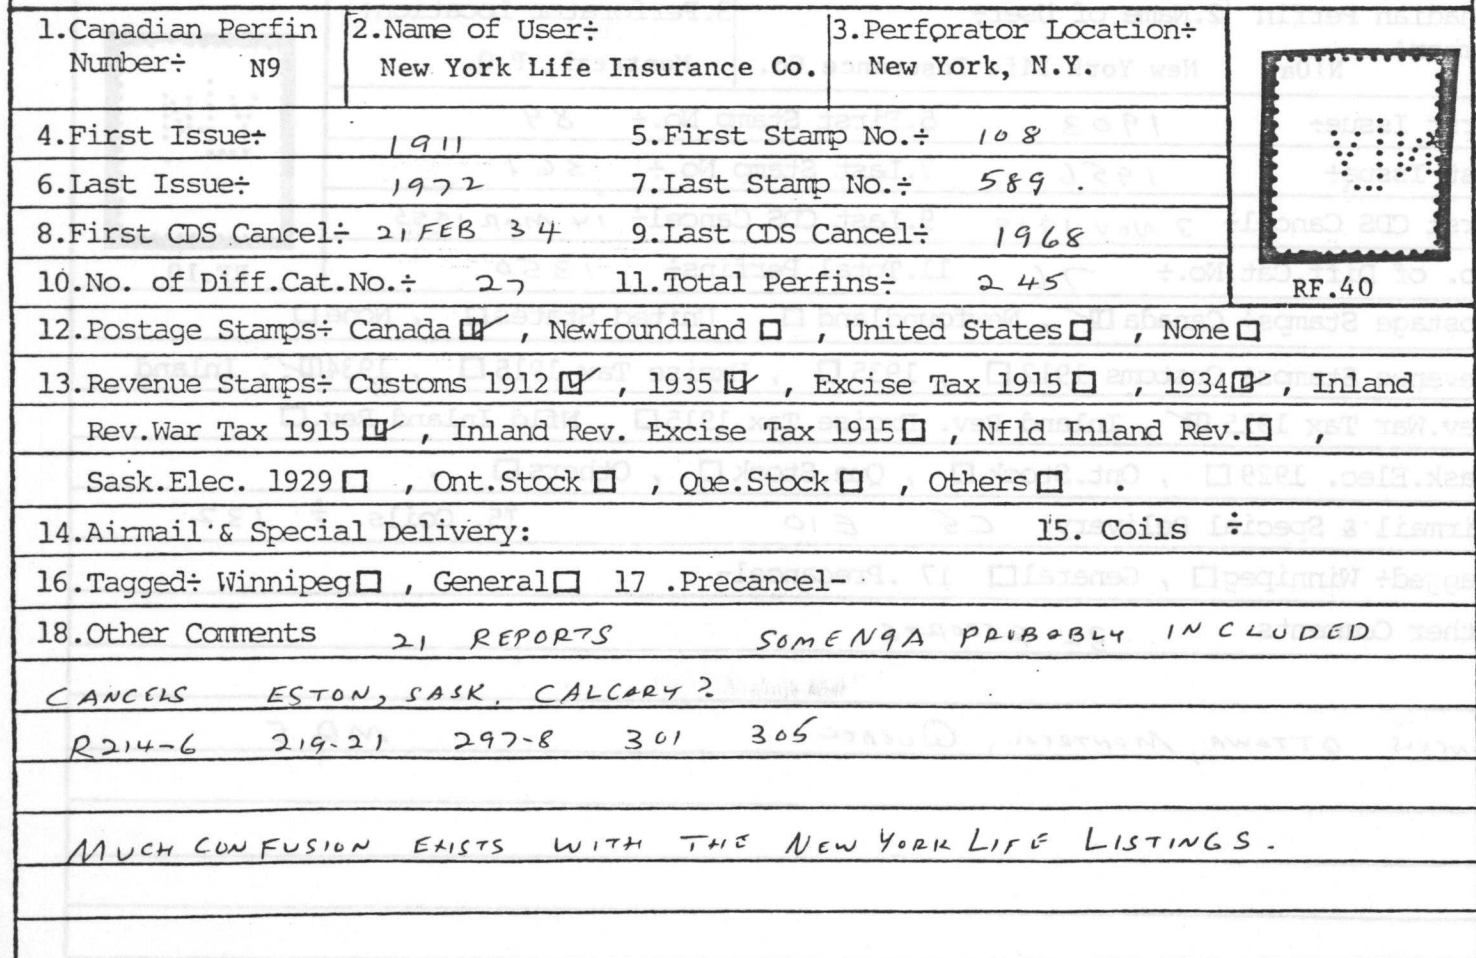 1.Canadian Perfin Number÷ N9
2.Name of User÷ New York Life Insurance Co.
3.Perforator Location÷ New York, N.Y.
4.First Issue÷ 1911 5.First Stamp No.÷ 108
6.Last Issue÷ 1972 7.Last Stamp No.÷ 589.
8.First CDS Cancel÷ 21 FEB 34 9.Last CDS Cancel÷ 1968
10.No. of Diff.Cat.No.÷ 27 11.Total Perfins÷ 245
RF.40
12.Postage Stamps÷ Canada ☑ , Newfoundland ☐ , United States ☐ , None ☐
13.Revenue Stamps÷ Customs 1912 ☑ , 1935 ☑ , Excise Tax 1915 ☐ , 1934 ☑ , Inland
Rev.War Tax 1915 ☑ , Inland Rev. Excise Tax 1915 ☐ , Nfld Inland Rev. ☐ ,
Sask.Elec. 1929 ☐ , Ont.Stock ☐ , Que.Stock ☐ , Others ☐
14.Airmail & Special Delivery: 15. Coils ÷
16.Tagged÷ Winnipeg ☐ , General ☐ 17 .Precancel-
18.Other Comments 21 REPORTS SOME N9A PRIBABLY INCLUDED
CANCELS ESTON, SASK. CALCARY?
R214-6 219-21 297-8 301 305
MUCH CONFUSION EXISTS WITH THE NEW YORK LIFE LISTINGS.